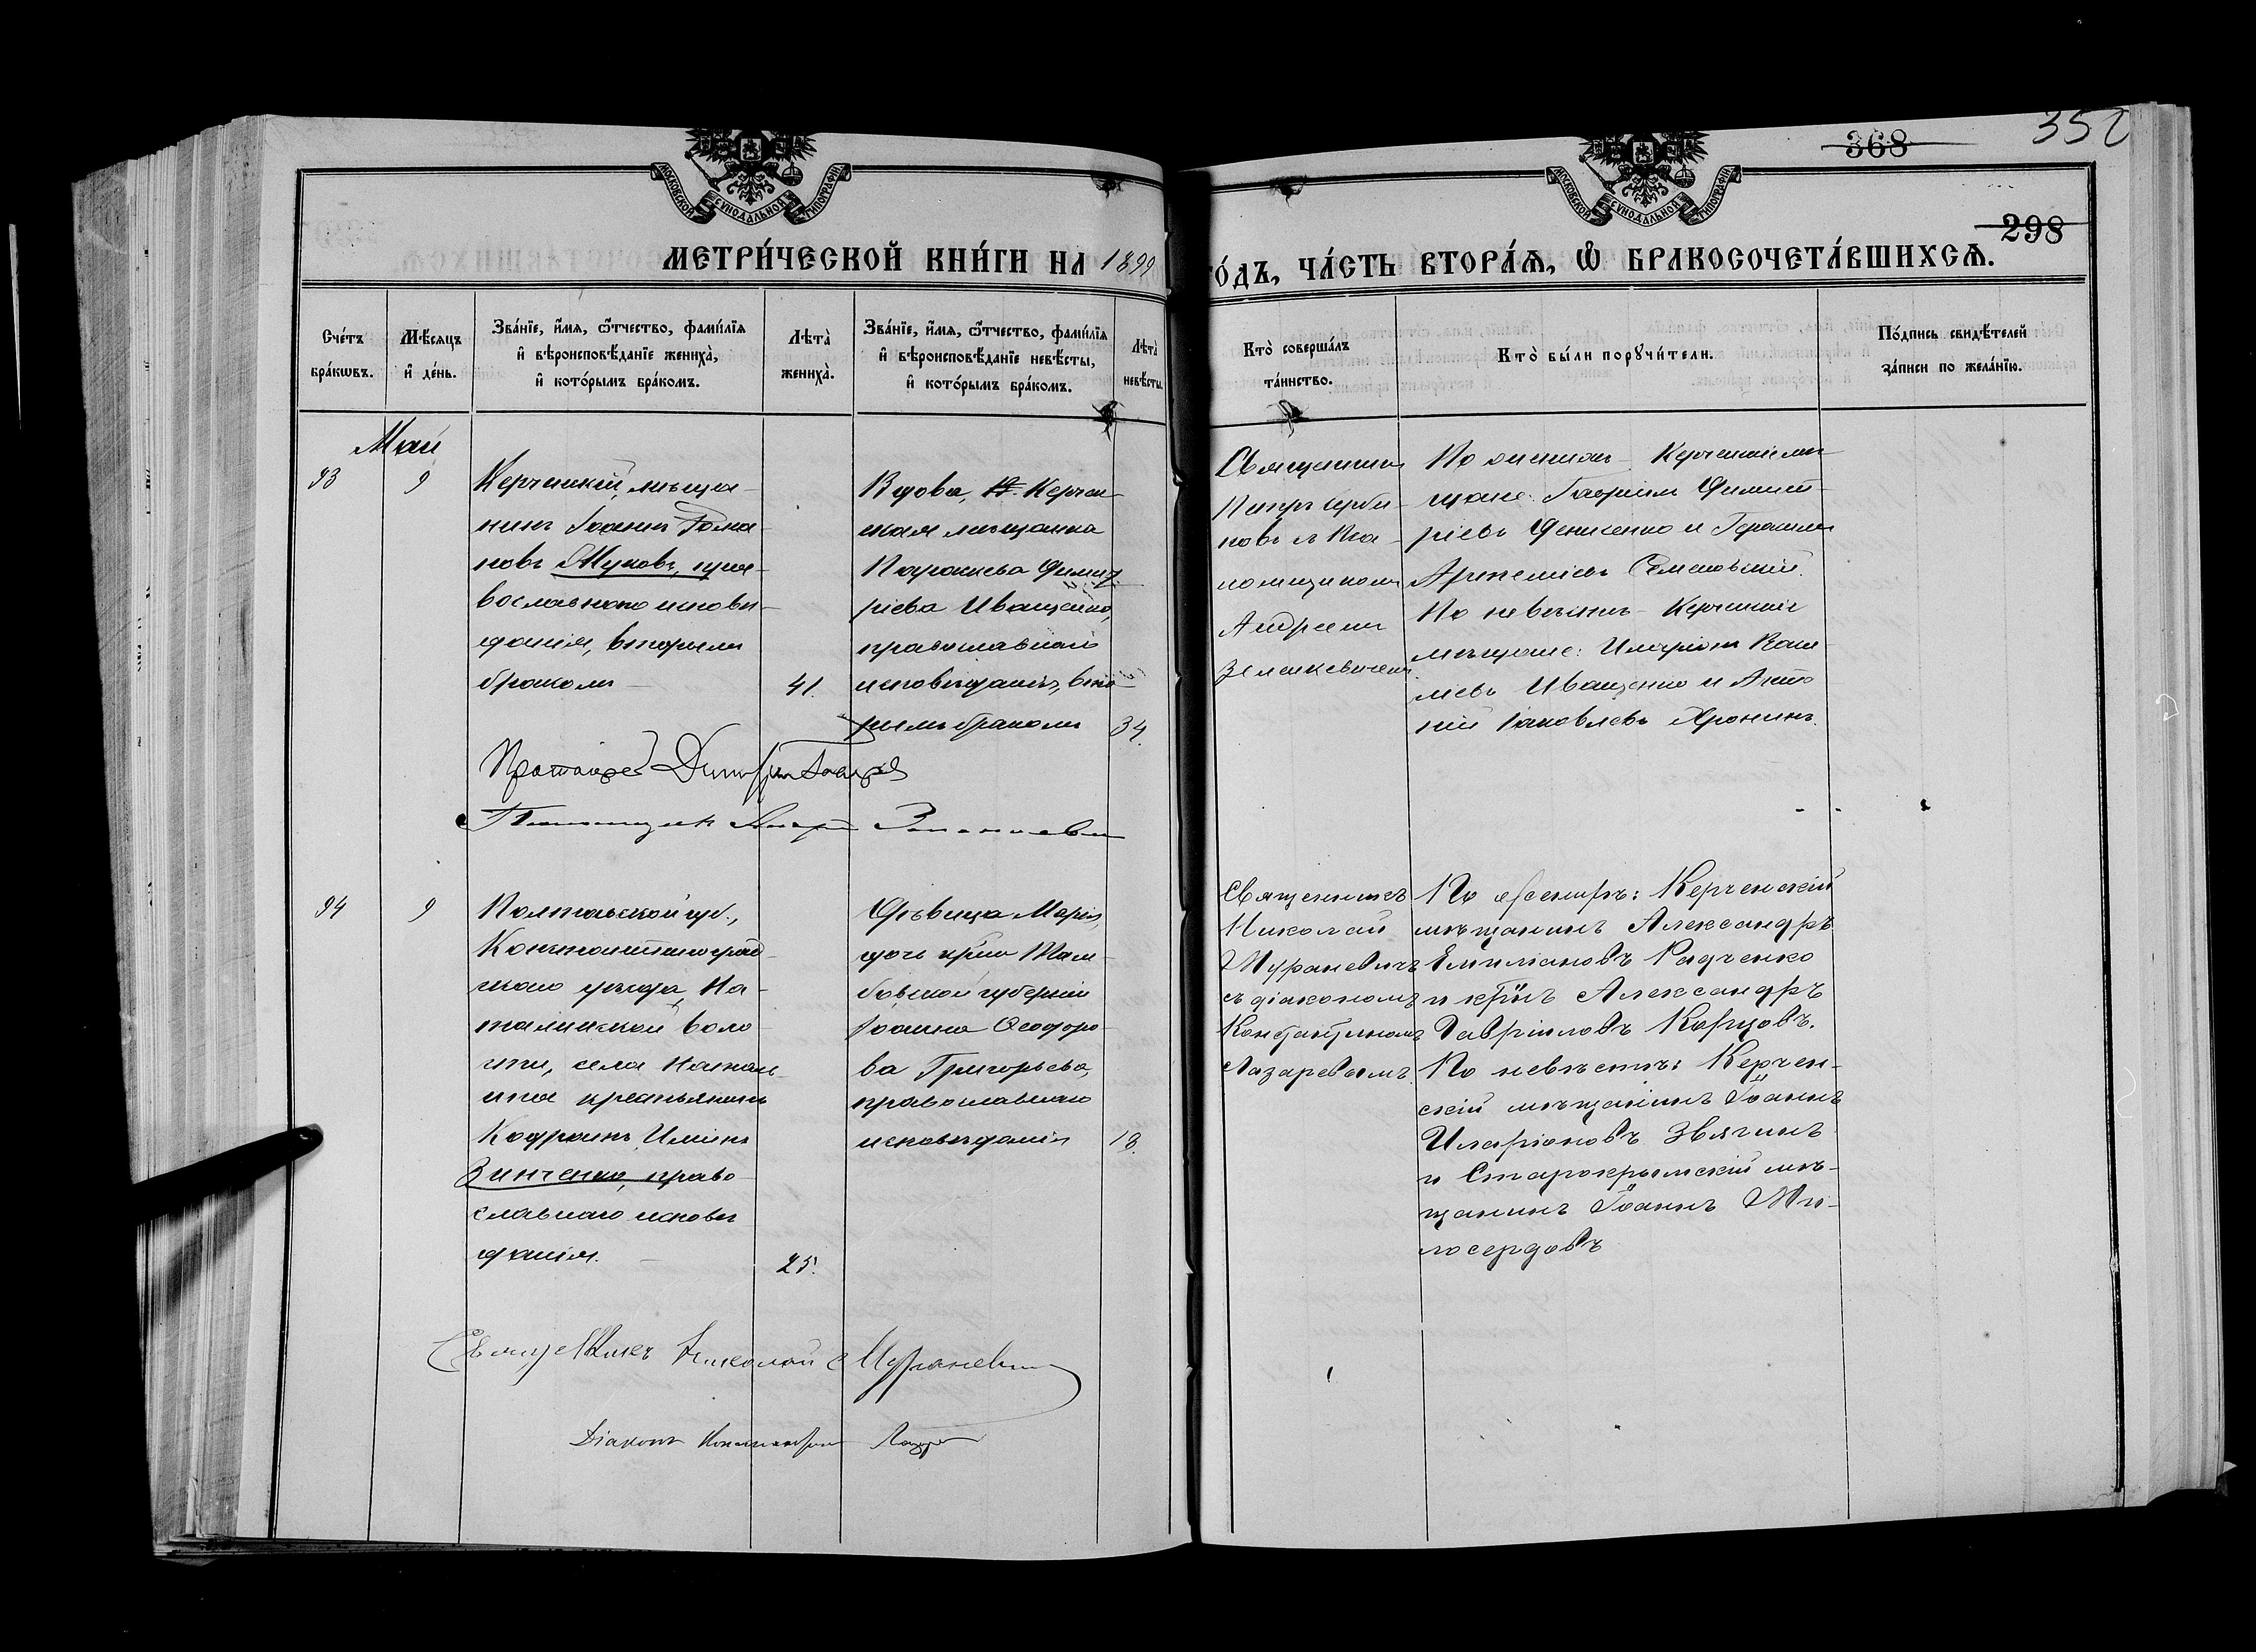 368
352
298
МОСКОВСКОЙ СѴНОДАЛЬНОЙ ТИПОГРАФІИ
МОСКОВСКОЙ СѴНОДАЛЬНОЙ ТИПОГРАФІИ
МЕТРИ́ЧЕСКОЙ КНИ́ГИ НА 1899
ГО́ДЪ, ЧА́СТЬ ВТОРА́Ѧ, Ѡ҆ БРАКОСОЧЕТА́ВШИХСѦ.
Сче́тъ бра́кѡвъ.
Мѣ́сяцъ и҆ де́нь.
Зва́нїе, и҆́мѧ, ѻ҆́тчество, фами́лїѧ
и҆ вѣроисповѣ́данїе жениха̀,
и҆ кото́рымъ бра́комъ.
Лѣта̀ жениха̀.
Зва́нїе, и҆́мѧ, ѻ҆́тчество, фами́лїѧ
и҆ вѣроисповѣ́данїе невѣ́сты,
и҆ кото́рымъ бра́комъ.
Лѣта̀ невѣ́сты.
Кто̀ соверша́лъ
та́инство.
Кто̀ бы́ли порꙋчи́тели.
По́дпись свидѣ́телей
за́писи по жела́нїю.
Май
93
9
Керченскій мѣща-
нинъ Іоаннъ Рома-
новъ Жуковъ, пра-
вославнаго исповѣ-
данія, вторымъ
бракомъ
41.
Вдова, Керчен-
ская мѣщанка
Параскева Димит-
ріева Иващенко,
православнаго
исповѣданія, вто-
рымъ бракомъ
34.
Священникъ
Петръ Сербиновъ съ
псаломщикомъ
Андреемъ
По женихѣ - Керченскіе мѣ-
щане: Гавріилъ Димит-
ріевъ Денисенко и Герасимъ
Артеміевъ
По невѣстѣ - Керченскіе
мѣщане: Иларіонъ Васи-
ліевъ Иващенко и Анто-
ній Іаковлевъ Хронинъ.
Протоіерей Димитрій
Псаломщикъ Андрей
94
9
Полтавской губ.,
Константиноград-
скаго уѣзда, На-
талинской воло-
сти, села Наталь-
ина крестьянинъ
Кодратъ Иліинъ
Зинченко, право-
славнаго исповѣ-
данія.
25.
Дѣвица Марія,
дочь кр͠на Там-
бовской губерніи
Іоанна Ѳеодоро-
ва Григорьева,
православнаго
исповѣданія
18.
Священникъ
Николай
Мураневичъ
съ діакономъ
Константиномъ
Лазаревымъ.
По женихѣ: Керченскій
мѣщанинъ Александръ
Емиліановъ Радченко
и кр͠нъ Александръ
Гавріиловъ Корцовъ.
По невѣстѣ: Керчен-
скій мѣщанинъ Іоаннъ
Иларіоновъ Звягинъ
и Старокрымскій мѣ-
щанинъ Іоаннъ Ми-
лосердовъ
Священникъ Николай Мураневичъ
Діаконъ Константинъ Лазаревъ